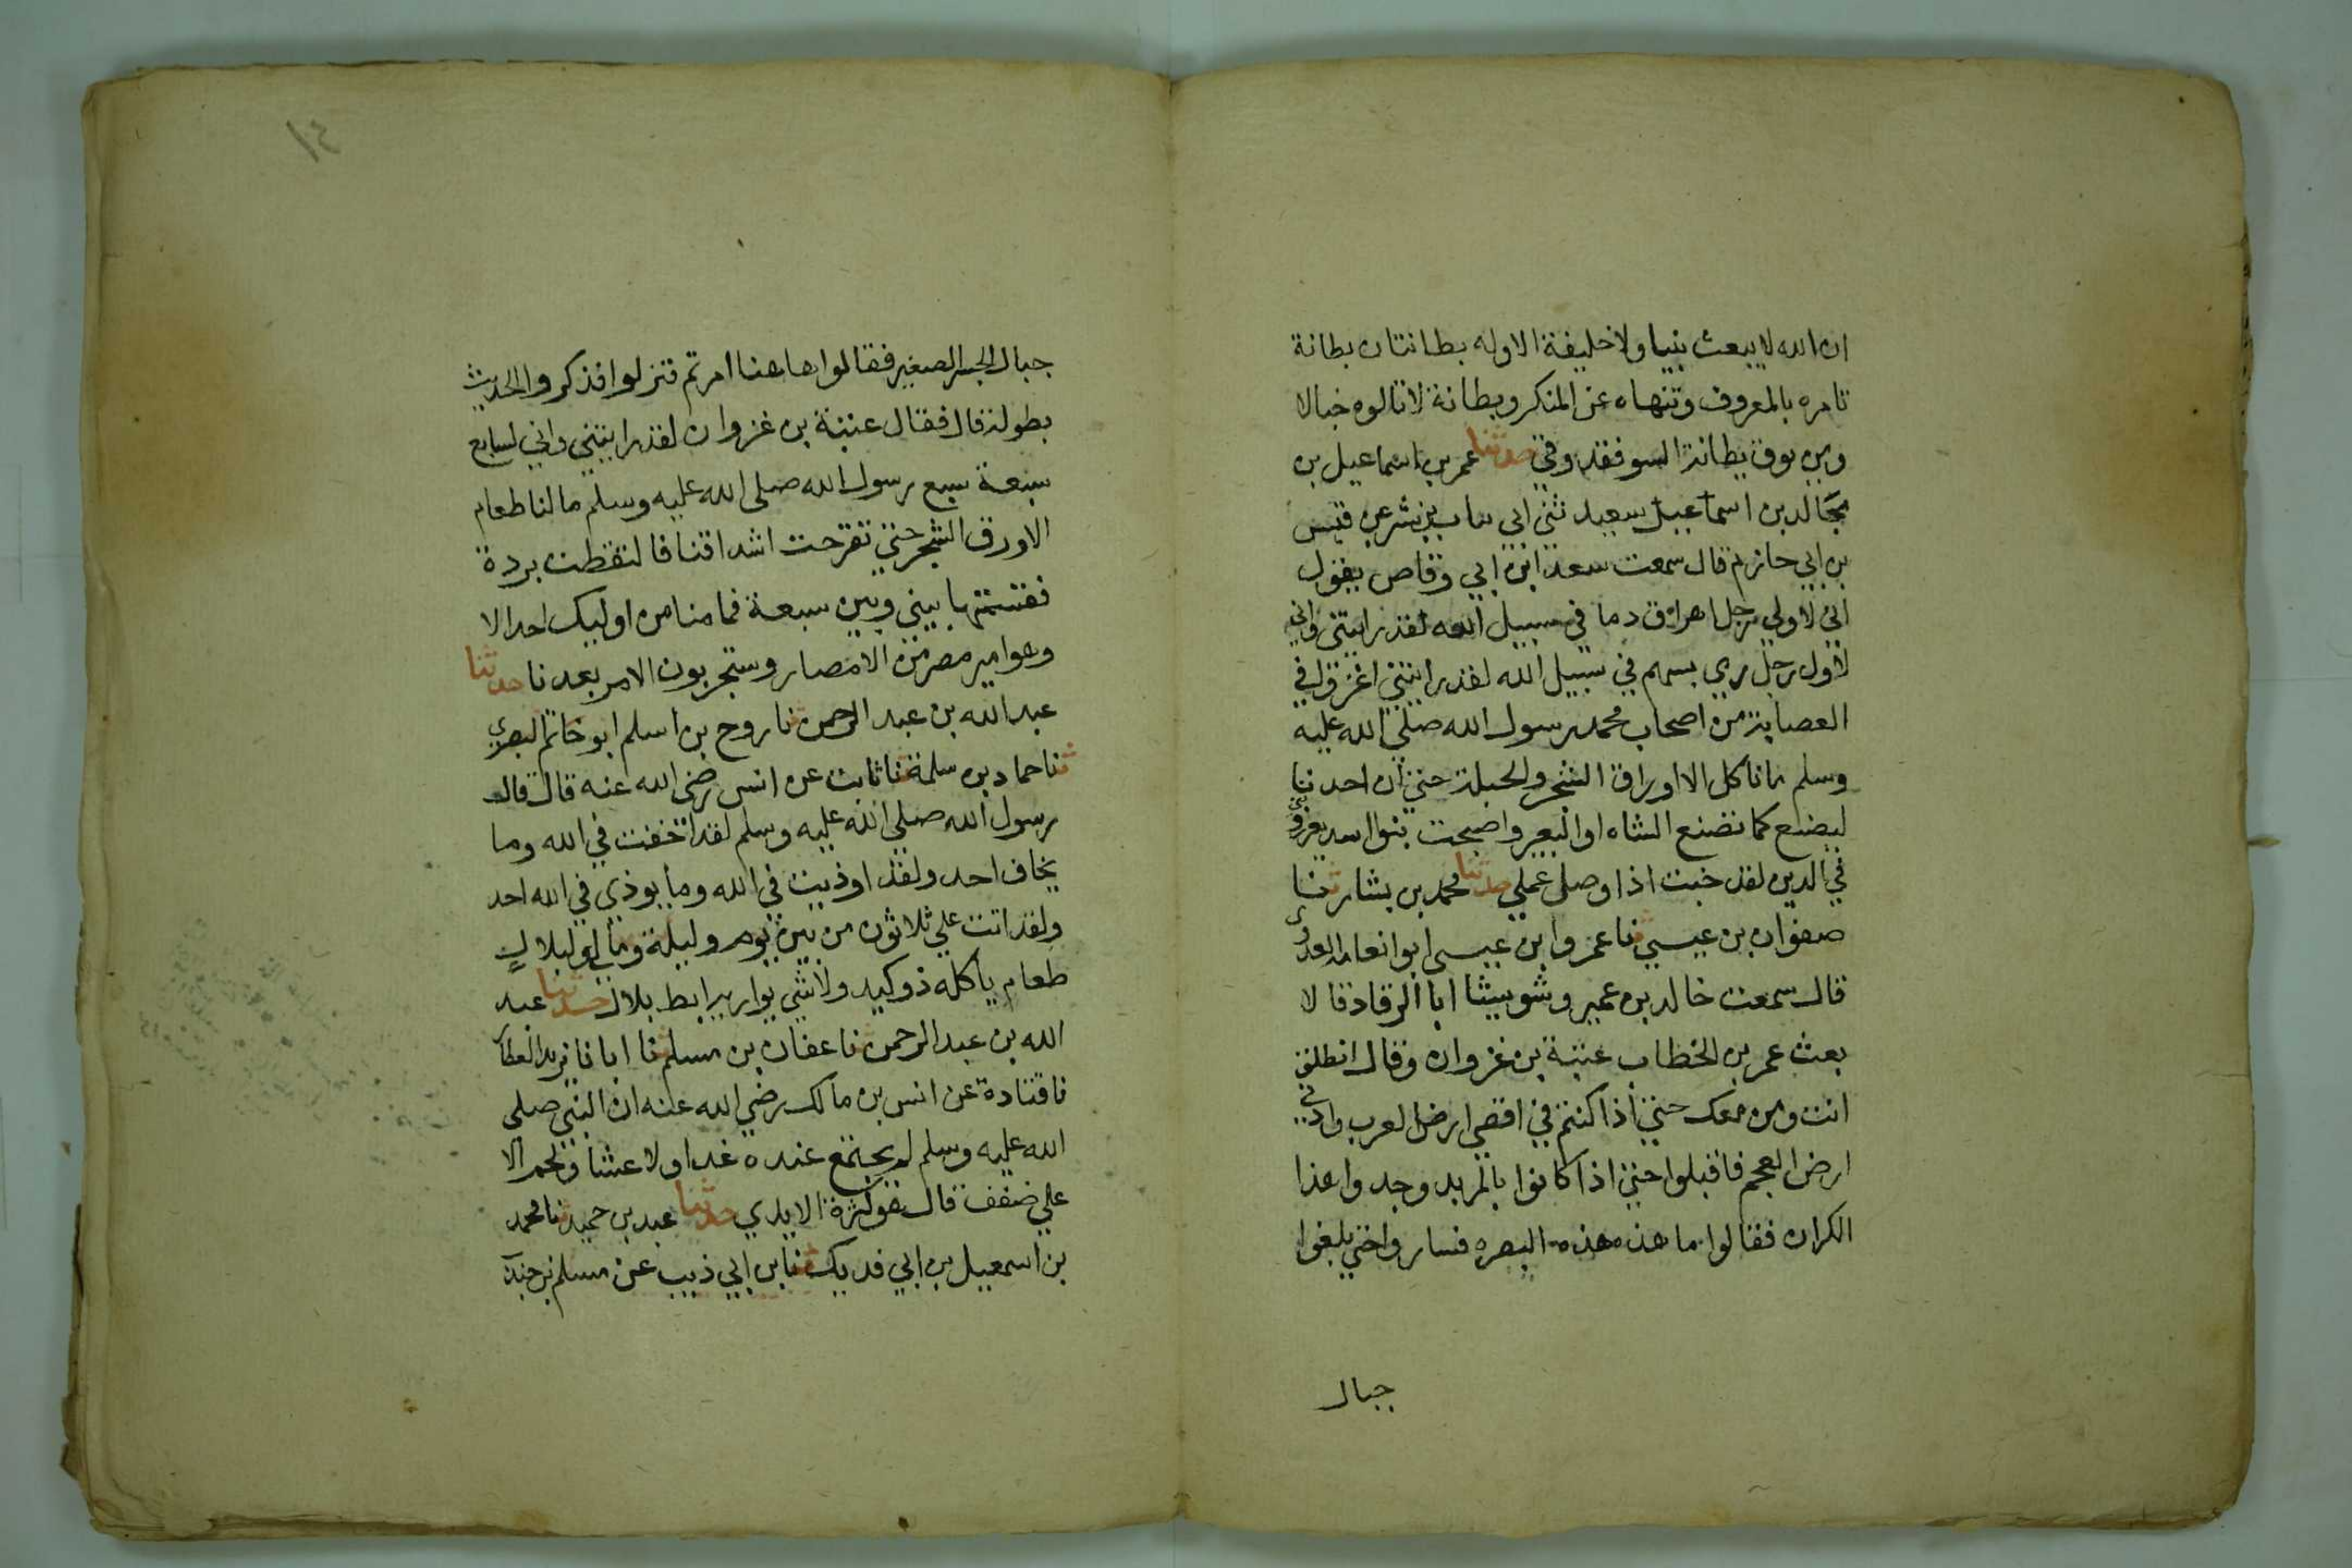 ان الله لا يبعث نبيا ولا خليفة الا وله بطانتان بطانة
تامره بالمعروف وتنهاه عن المنكر وبطانة لا تالوه خبالا
ومن يوق بطانة السو فقد وقي حدثنا عمر بن اسماعيل بن
مجالد بن اسماعيل سعيد ثني ابي بشر عن قيس
بن ابي حازم قال سمعت سعد ابن ابي وقاص يقول
اني لاولي رجل اهراق دما في سبيل الله لقد رايتني واني
لاول رجل رمي بسهم في سبيل الله لقد رايتني اغزو في
العصابة من اصحاب محمد رسول الله صلى الله عليه
وسلم ما ناكل الا اوراق الشجر والحبلة حتي ان احدنا
ليضع كما تضع الشاه او البعير واصبحت بنوا اسد يعزروني
في الدين لقد خبت اذا وصل عملي حدثنا محمد بن بشار ثنا
صفوان بن عيسي ثنا عمروا بن عيسى ابوا نعامه العدوي
قال سمعت خالد بن عمير وشويسا ابا الرقاد قالا
بعث عمر بن الخطاب عتبة بن غزوان وقال انطلق
انت ومن معك حتي اذا كنتم في اقصي ارض العرب وادني
ارض العجم فاقبلوا حتي اذا كانوا بالمربد وجدوا هذا
الكران فقالوا ما هذه هذه البصره فساروا حتي بلغوا
جبال
١٤
جبال الجسر الصغير فقالوا هاهنا امرتم فنزلوا فذكروا الحديث
بطوله قال فقال عتبة بن غزوان لقد رايتني واني لسابع
سبعة مع رسول الله صلى الله عليه وسلم ما لنا طعام
الا ورق الشجر حتي تقرحت اشداقنا فالتقطت بردة
فقسمتها بيني وبين سبعة فما منا من اوليك احد الا
وهو امير مصر من الامصار وستجربون الامر بعدنا حدثنا
عبد الله بن عبد الرحمن ثنا روح بن اسلم ابو حاتم البصري
ثنا حماد بن سلمة ثنا ثابت عن انس رضي الله عنه قال قال
رسول الله صلى الله عليه وسلم لقد اخفت في الله وما
يخاف احد ولقد اوذيت في الله وما يوذي في الله احد
ولقد اتت علي ثلاثون من بين يوم وليلة وما لي ولبلال
طعام ياكله ذو كبد ولا شي يواريه ابط بلال حدثنا عبد
الله بن عبد الرحمن ثنا عفان بن مسلم ثنا ابان نا يزيد العطار
نا قتادة عن انس بن مالك رضي الله عنه ان النبي صلى
الله عليه وسلم لم يجتمع عنده غدا ولا عشا ولحم الا
علي ضفف قال هو كثرة الايدي حدثنا عبد بن حميد ثنا محمد
بن اسمعيل بن ابي فديك ثنا ابن ابي ذيب عن مسلم بن جندب